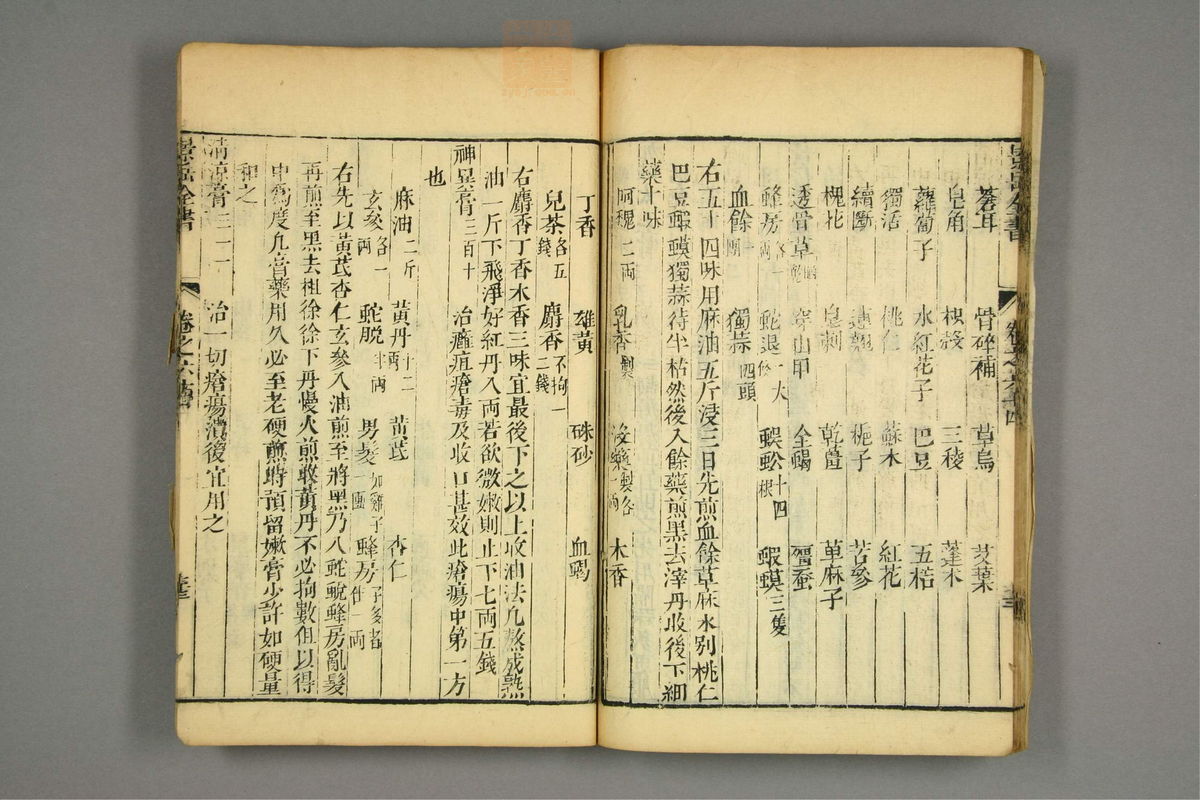 蒼耳 骨碎補 草烏 艾葉
皂角 枳殼 三稜 蓬朮
蘿蔔子 水紅花子 巴豆 五棓
獨活 桃仁 蘇木 紅花
續斷 連翹 梔子 苦參
槐花 皂刺 乾葛 萆麻子
透骨草 穿山甲 全蝎 殭蚕
蜂房各一両 蛇退一大條 蜈蚣十四根 蝦蟆三隻
血餘一團 獨蒜四頭
右五十四味用麻油五斤浸三日先煎血餘草麻木別桃仁
巴豆蝦蟆獨蒜待半枯然後入餘藥煎黑去滓丹收後下細
藥十味
阿魏二両 乳香製 沒藥製各一両 木香
丁香 雄黃 硃砂 血竭
兒茶各五錢 麝香不拘一二錢
右麝香丁香木香三味宜最後下之以上收油法凢熬成熟
油一斤下飛淨好紅丹八両若欲微嫩則止下七両五錢
神异膏三百十 治癰疽瘡毒及收口甚效此瘡瘍中第一方
也
麻油二斤 黃丹十二両 黃芪 杏仁
玄參各一両 蛇脫半両 男髮如雞子一團 蜂房子多者佳一両
右先以黃芪杏仁玄參入油煎至將黑乃入蛇蛻蜂房亂髮
再煎至黑去柤徐徐下丹慢火煎收黃丹不必拘數但以得
中爲度凢膏藥用久必至老硬煎時預留嫩膏少許如硬量
和之
清涼膏三一一 治一切瘡瘍潰後宜用之
景岳全書 卷之六十四